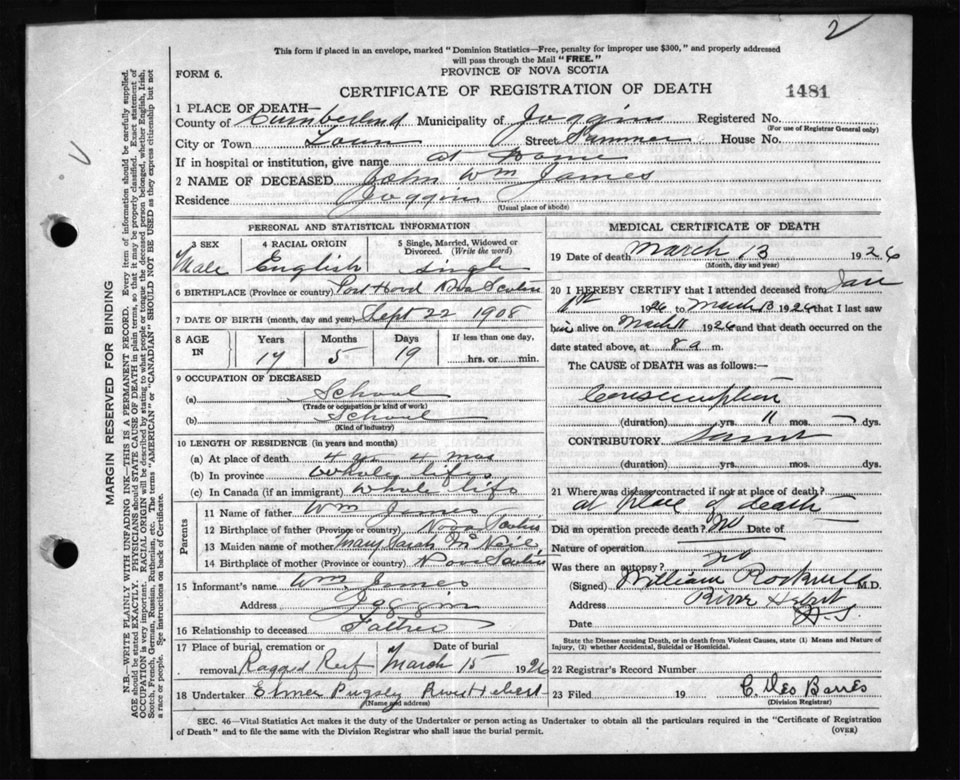 2
This form if placed in an envelope, marked "Dominion Statistics—Free, penalty for improper use $300," and properly addressed
will pass through the Mail "FREE."
FORM 6.
PROVINCE OF NOVA SCOTIA
CERTIFICATE OF REGISTRATION OF DEATH
1481
1 PLACE OF DEATH—
County of Cumberland Municipality of Joggins Registered No.
(For use of Registrar General only)
City or Town Town Street House No.
If in hospital or institution, give name at Home
2 NAME OF DECEASED John Wm James
Residence Joggins
(Usual place of abode)
PERSONAL AND STATISTICAL INFORMATION
3 SEX
Male
4 RACIAL ORIGIN
English
5 Single, Married, Widowed or
Divorced. (Write the word)
single
6 BIRTHPLACE (Province or country) Port Hood Nova Scotia
7 DATE OF BIRTH (month, day and year) Sept 22 1908
8 AGE
IN
Years
17
Months
5
Days
19
If less than one day,
......hrs. or ......min.
9 OCCUPATION OF DECEASED
(a) School
(Trade or occupation or kind of work)
(b) School
(Kind of industry)
10 LENGTH OF RESIDENCE (in years and months)
(a) At place of death 4 yr 4 mos
(b) In province whole life
(c) In Canada (if an immigrant) whole life
Parents
11 Name of father Wm James
12 Birthplace of father (Province or country) Nova Scotia
13 Maiden name of mother Mary Sarah
14 Birthplace of mother (Province or country) Nova Scotia
15 Informant's name Wm James
Address Joggins
16 Relationship to deceased Father
17 Place of burial, cremation or
removal Ragged Reef
Date of burial
March 15 1926
18 Undertaker Elmer Pugsley River Hebert
(Name and address)
MEDICAL CERTIFICATE OF DEATH
19 Date of death March 13 1926
(Month, day and year)
20 I HEREBY CERTIFY that I attended deceased from Jan
1st 1926 to March 13 1926 that I last saw
him alive on March 11 1926 and that death occurred on the
date stated above, at 8 a m.
The CAUSE of DEATH was as follows:—
Consumption
(duration) yrs. 11 mos. dys.
CONTRIBUTORY
(duration) yrs. mos. dys.
21 Where was disease contracted if not at place of death?
at place of death
Did an operation precede death? no Date of
Nature of operation
Was there an autopsy? no
(Signed) William Rockwell M.D.
Address River Hebert
Date N.S.
State the Disease causing Death, or in death from Violent Causes, state (1) Means and Nature of
Injury, (2) whether Accidental, Suicidal or Homicidal.
22 Registrar's Record Number
23 Filed 19 C. Des Barres
(Division Registrar)
SEC. 46—Vital Statistics Act makes it the duty of the Undertaker or person acting as Undertaker to obtain all the particulars required in the "Certificate of Registration
of Death" and to file the same with the Division Registrar who shall issue the burial permit.
(OVER)
MARGIN RESERVED FOR BINDING
N.B.—WRITE PLAINLY WITH UNFADING INK—THIS IS A PERMANENT RECORD. Every item of information should be carefully supplied.
AGE should be stated EXACTLY. PHYSICIANS should STATE CAUSE OF DEATH in plain terms, so that it may be properly classified. Exact statement of
OCCUPATION is very important. RACIAL ORIGIN will be described by stating to what people or tongue the deceased person belonged, whether English, Irish,
Scotch, French, German, Russian, Ruthenian, etc. The terms "AMERICAN" or "CANADIAN" SHOULD NOT BE USED as they express citizenship but not
a race or people. See instructions on back of Certificate.